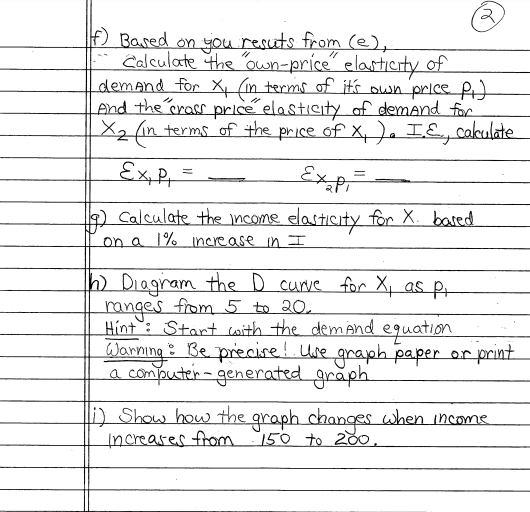 2
f) Based on you resuts from (e),
Calculate the "own-price" elasticity of
demand for X₁ (in terms of it's own price P₁)
And the "cross price" elasticity of demand for
X₂ (in terms of the price of X₁). I.E., calculate
Ɛx₁P₁ = ___ Ɛx₂P₁ = ___
g) Calculate the income elasticity for X. based
on a 1% increase in I
h) Diagram the D curve for X₁ as P₁
ranges from 5 to 20.
Hint: Start with the demand equation
Warning: Be precise! Use graph paper or print
a computer-generated graph
i) Show how the graph changes when income
increases from 150 to 200.